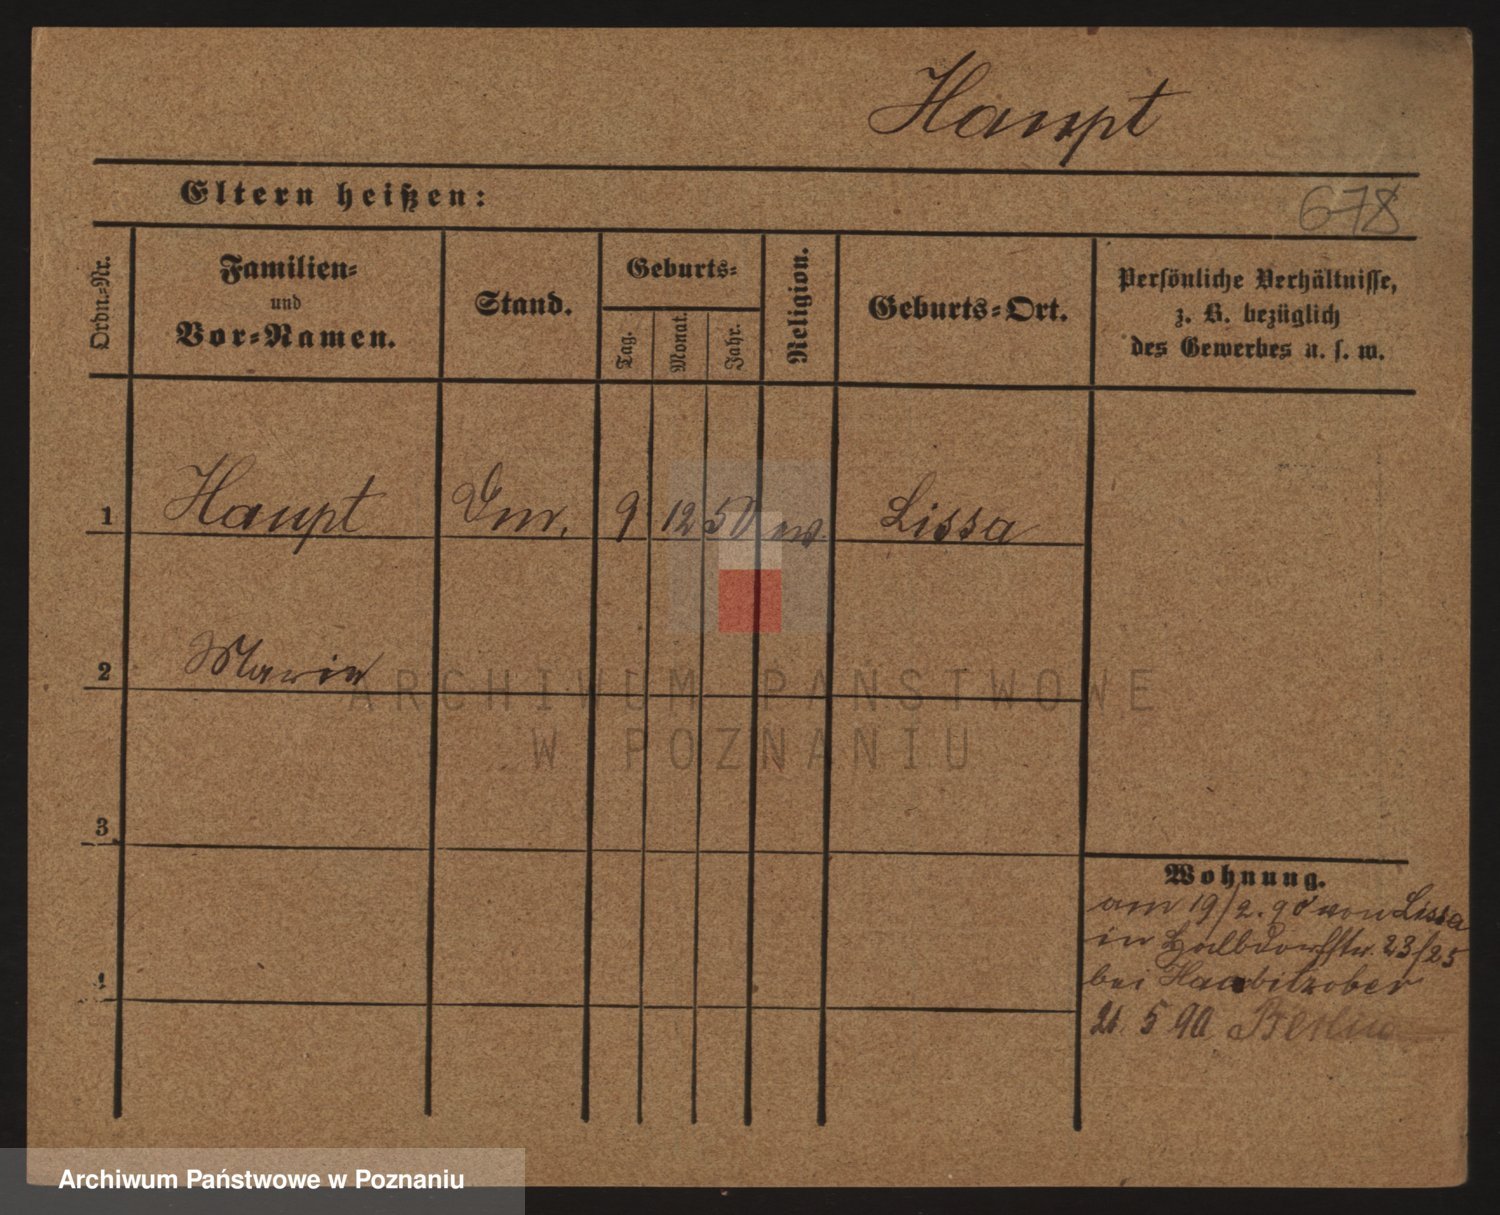 Haupt
Eltern heißen:
678
Ordn.-Nr.
Familien-
und
Vor-Namen.
Stand.
Geburts-
Tag.
Monat.
Jahr.
Religion.
Geburts-Ort.
Persönliche Verhältnisse,
z. B. bezüglich
des Gewerbes u. s. w.
1 Haupt 9 12 50 ev Lissa
2 Marie
ARCHIWUM PAŃSTWOWE
W POZNANIU
3
Wohnung.
am 19/2. 90 von Lissa
in Halbdorfstr. 23/25
bei
4
21. 5 90 Berlin
Archiwum Państwowe w Poznaniu